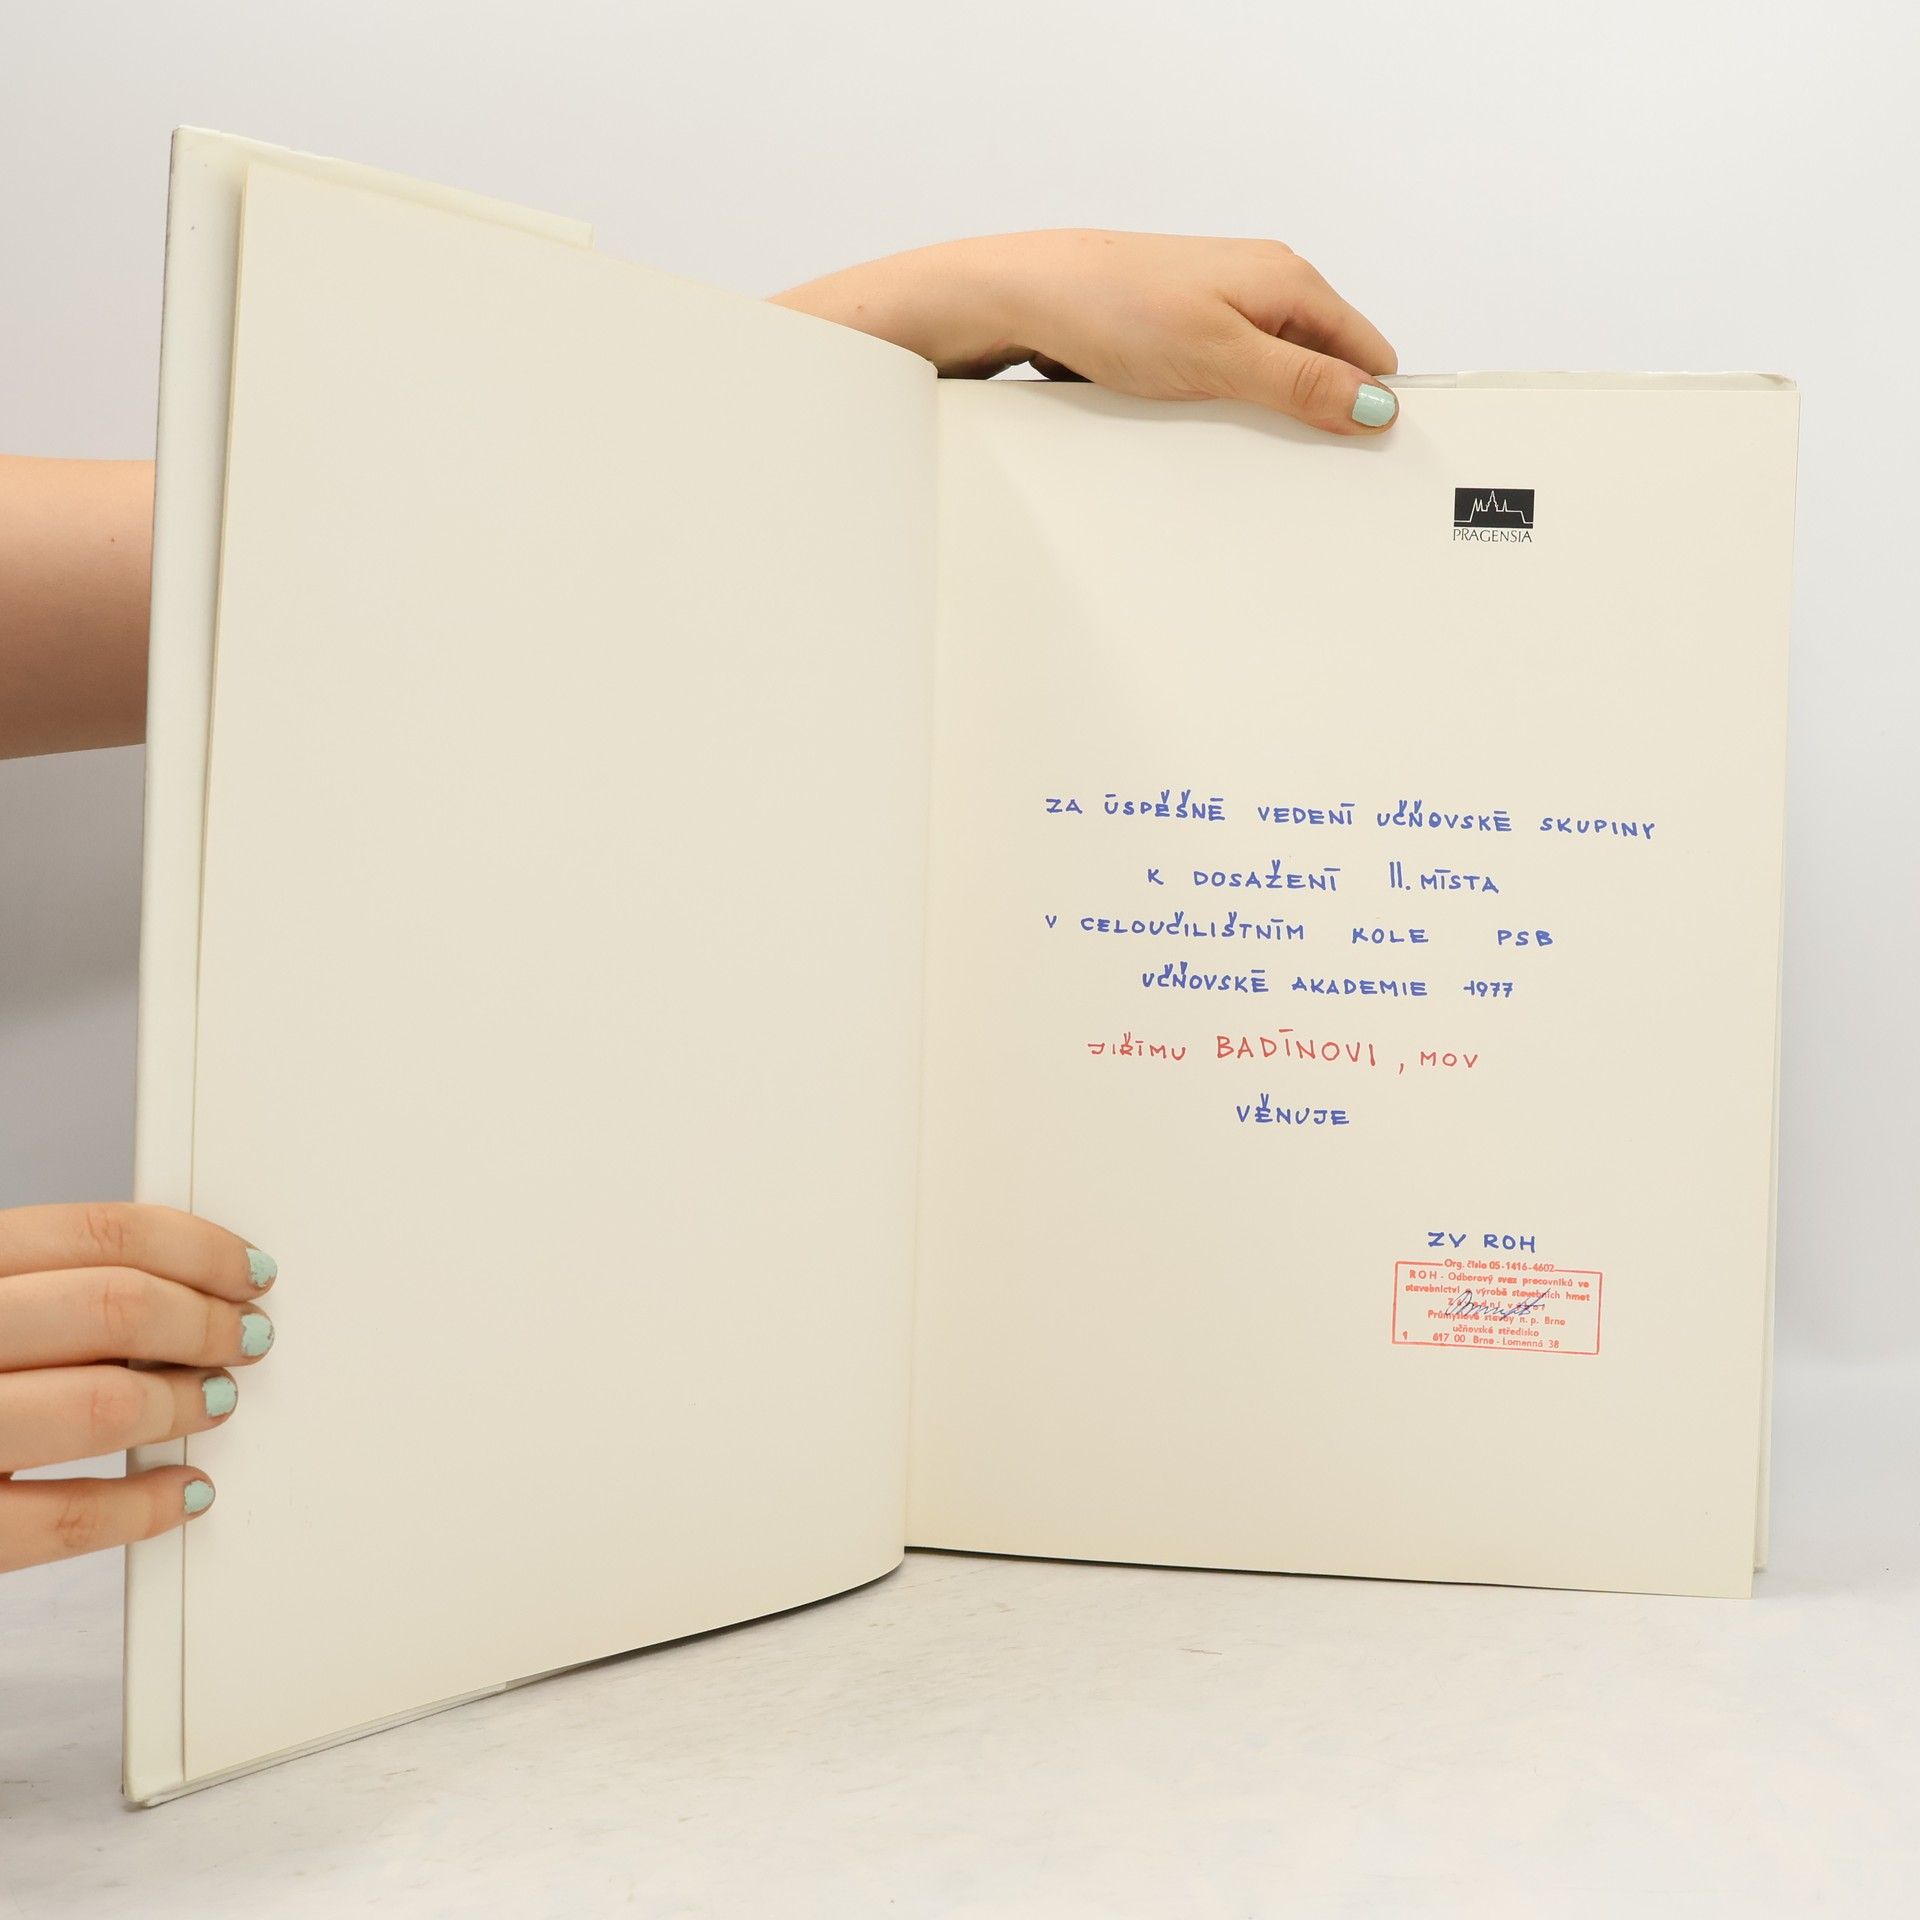 PRAGENSIA
ZA ÚSPĚŠNÉ VEDENÍ UČŇOVSKÉ SKUPINY
K DOSAŽENÍ II. MÍSTA
V CELOUČILIŠTNÍM KOLE PSB
UČŇOVSKÉ AKADEMIE 1977
JIŘÍMU BADÍNOVI, MOV
VĚNUJE
ZV ROH
Org. číslo 05-1416-4602
ROH - Odborový svaz pracovníků ve
stavebnictví a výrobě stavebních hmot
Závodní výbor
Průmyslové stavby n. p. Brno
učňovské středisko
1 617 00 Brno - Lomenná 38